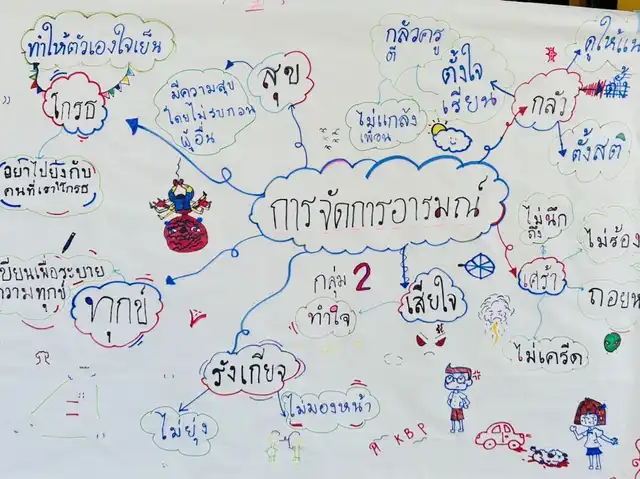 ทำให้ตัวเองใจเย็น
โกรธ
อย่าไปยุ่งกับ
คนที่เราโกรธ
สุข
มีความสุข
โดยไม่รบกวน
ผู้อื่น
กลัวครู
ตี
ตั้งใจ
เรียน
ไม่แกล้ง
เพื่อน
กลัว
ตั้งสติ
การจัดการอารมณ์
กลุ่ม 2
ไม่นึก
ถึง
ไม่ร้อง
เศร้า
ไม่เครีด
เสียใจ
ทำใจ
เขียนเพื่อระบาย
ความทุกข์
ทุกข์
รังเกียจ
ไม่ยุ่ง
ไม่มองหน้า
A KBP